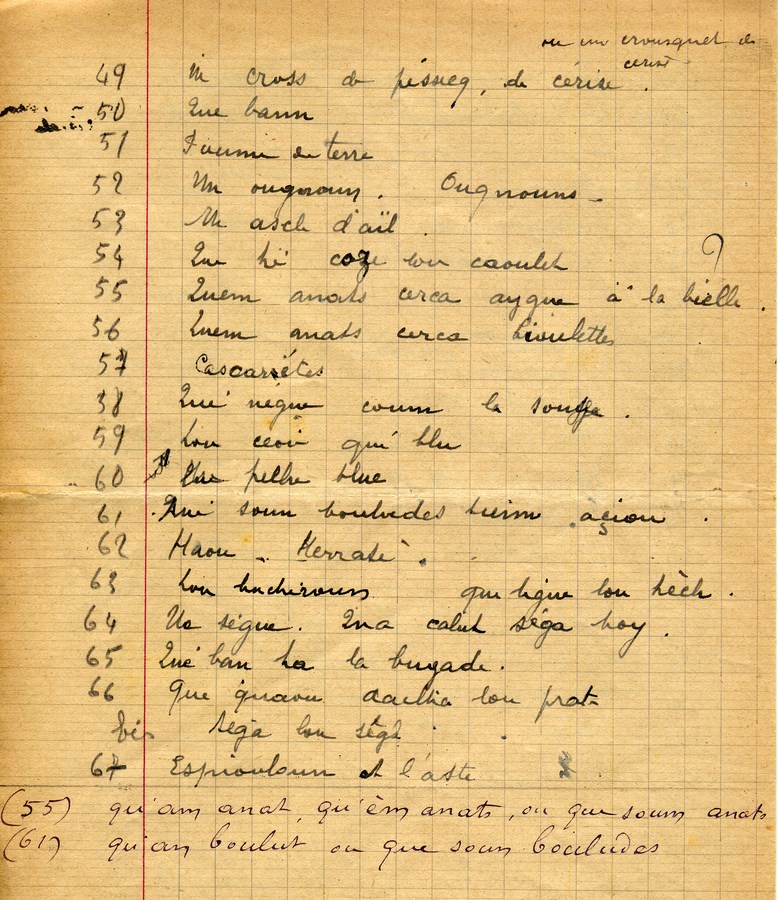 ou un crousquet de
cerise
49 Un cross de pésseg, de cérise.
50 Que bann
51 de terre
52 Un ougnoun. Ougnouns
53 U ascle d'aïl.
54 Que hè coze lou caoulet ?
55 Quem anats cerca aygue à la bielle.
56 Quem anats cerca bioulettes
57 Cascarrétes
58 Qué nègue coum la
59 Lou ceou qui blu
60 pelhe blue
61 Qué soun bouludes açiou.
62 Haou. Herratè.
63 Lou que ligue lou hèch.
64 Ue ségue. Qu'a calut séga boy.
65 Qué ban ha la bugade.
66 Que quaou dailha lou prat
bis Séga lou ségla
67 Espiouloun et l'aste
(55) qu'am anat, qu'èm anats, ou que soum anats
(61) qu'an boulut ou que soun bouludes